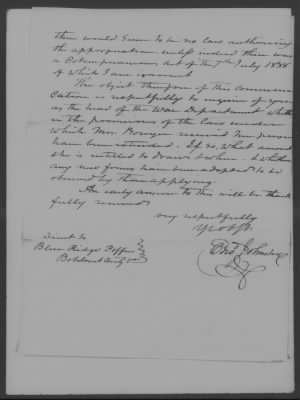 there would seem to be no law authorising
the appropriation, unless indeed there was
a cotemporaneous act of the 7th July 1838
of which I am ignorant
The object therefore of this communi
cation is respectfully to enquire of you
as the head of the War Department whether
in the provisions of the law under
which Mrs. Bowyer received her pension
have been extended. If so, what amount
she is entitled to draw & when, & whether
any new forms have been adopted to be
observed by those applying.
An early answer to this will be thank
fully received
very respectfully
yr obt
Johnston
Direct to
Blue Ridge P. office
Botetourt County Va